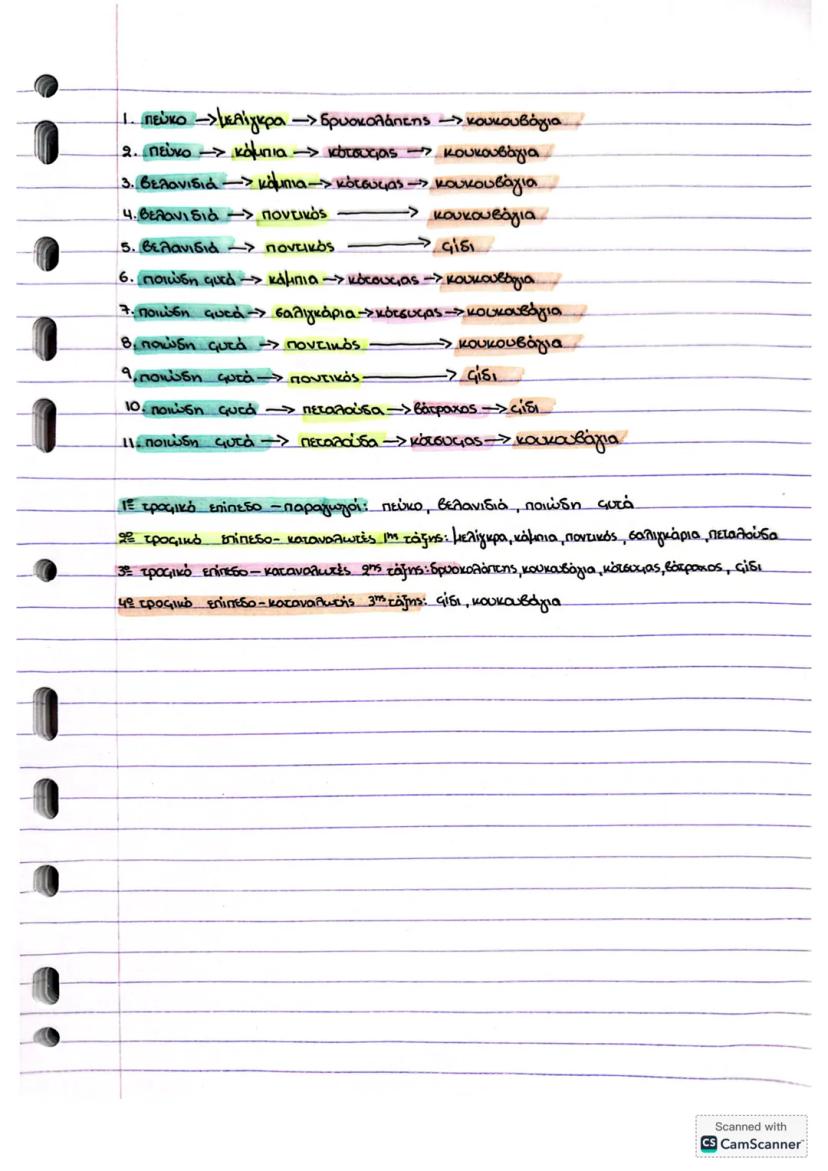 1. πεύκο → μελίγκρα → δρυοκολάπτης → κουκουβάγια
2. πεύκο → κάμπια → κότσυφας → κουκουβάγια
3. βελανιδιά → κάμπια → κότσυφας → κουκουβάγια
4. βελανιδιά → ποντικός → κουκουβάγια
5. βελανιδιά → ποντικός → φίδι
6. ποιώδη φυτά → κάμπια → κότσυφας → κουκουβάγια
7. ποιώδη φυτά → σαλιγκάρια → κότσυφας → κουκουβάγια
8. ποιώδη φυτά → ποντικός → κουκουβάγια
9. ποιώδη φυτά → ποντικός → φίδι
10. ποιώδη φυτά → πεταλούδα → βάτραχος → φίδι
11. ποιώδη φυτά → πεταλούδα → κότσυφας → κουκουβάγια
1ο τροφικό επίπεδο – παραγωγοί: πεύκο, βελανιδιά, ποιώδη φυτά
2ο τροφικό επίπεδο - καταναλωτές 1ης τάξης: μελίγκρα, κάμπια, ποντικός, σαλιγκάρια, πεταλούδα
3ο τροφικό επίπεδο – καταναλωτές 2ης τάξης: δρυοκολάπτης, κουκουβάγια, κότσυφας, βάτραχος, φίδι
4ο τροφικό επίπεδο - καταναλωτής 3ης τάξης: φίδι, κουκουβάγια
Scanned with
CS CamScanner